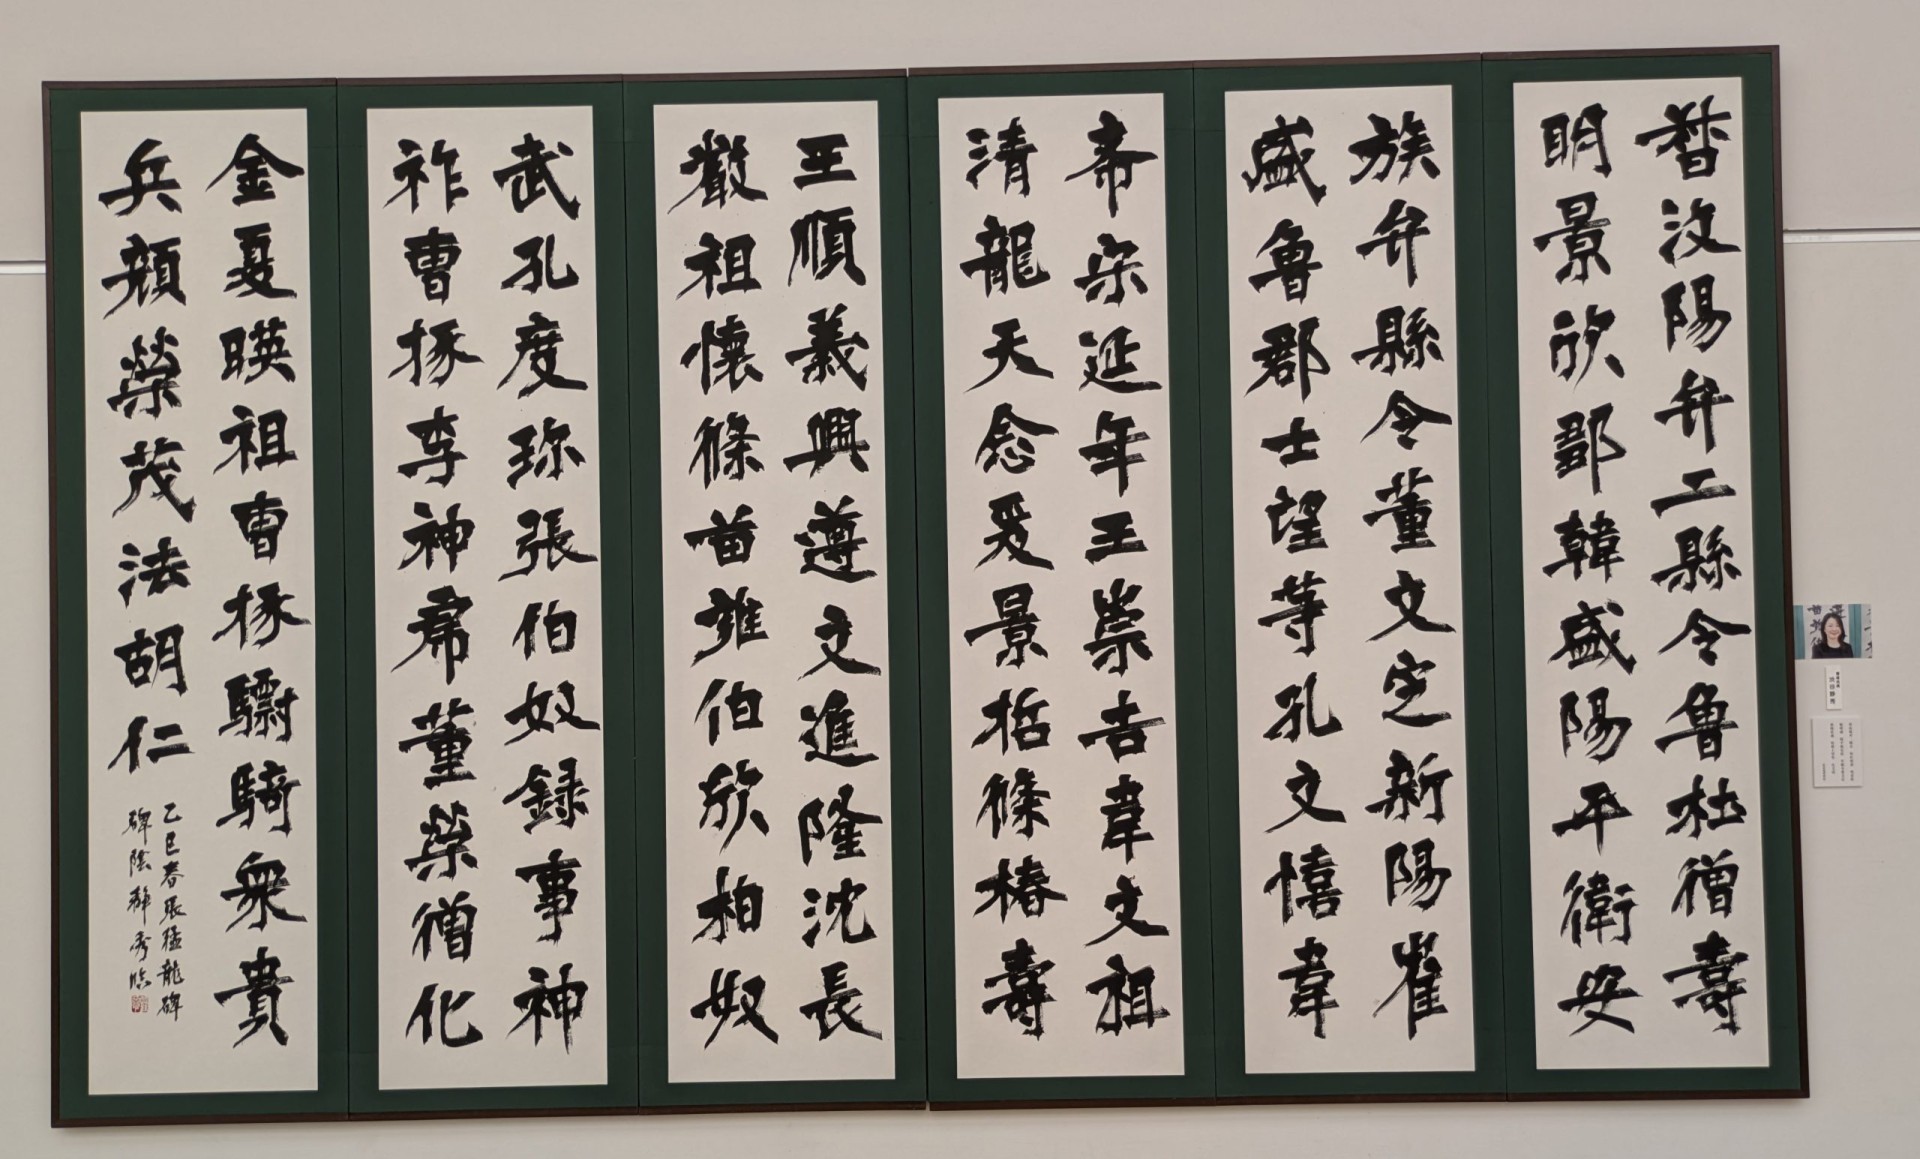 督汶陽弁二縣令魯杜僧壽
明景欣鄒韓盛陽平衛安
族弁縣令董文定新陽崔
盛魯郡士望等孔文憘韋
斎宋延年王崇吉韋文祖
清龍天念爰景哲條椿壽
王順義興遵文進隆沈長
嚴祖懷條苗雍伯欣柏奴
武孔度珎張伯奴録事神
祚曹掾李神席董榮僧化
金夏暎祖曹掾驎騎衆貴
兵顔榮茂法胡仁
乙巳春張猛龍碑
碑陰 秀臨